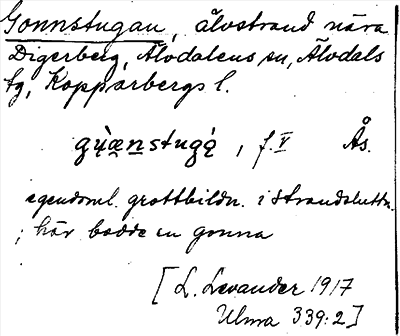 Gonnstugan, älvstrand nära
Digerberg, Älvdalens sn, Älvdals
tg, Kopparbergs l.
gų̀æ̨nstugą̀, f. V Ås.
egendoml. grottbildn. i strandsluttn.
; här bodde en gonna
[L. Levander 1917
Ulma 339:2]